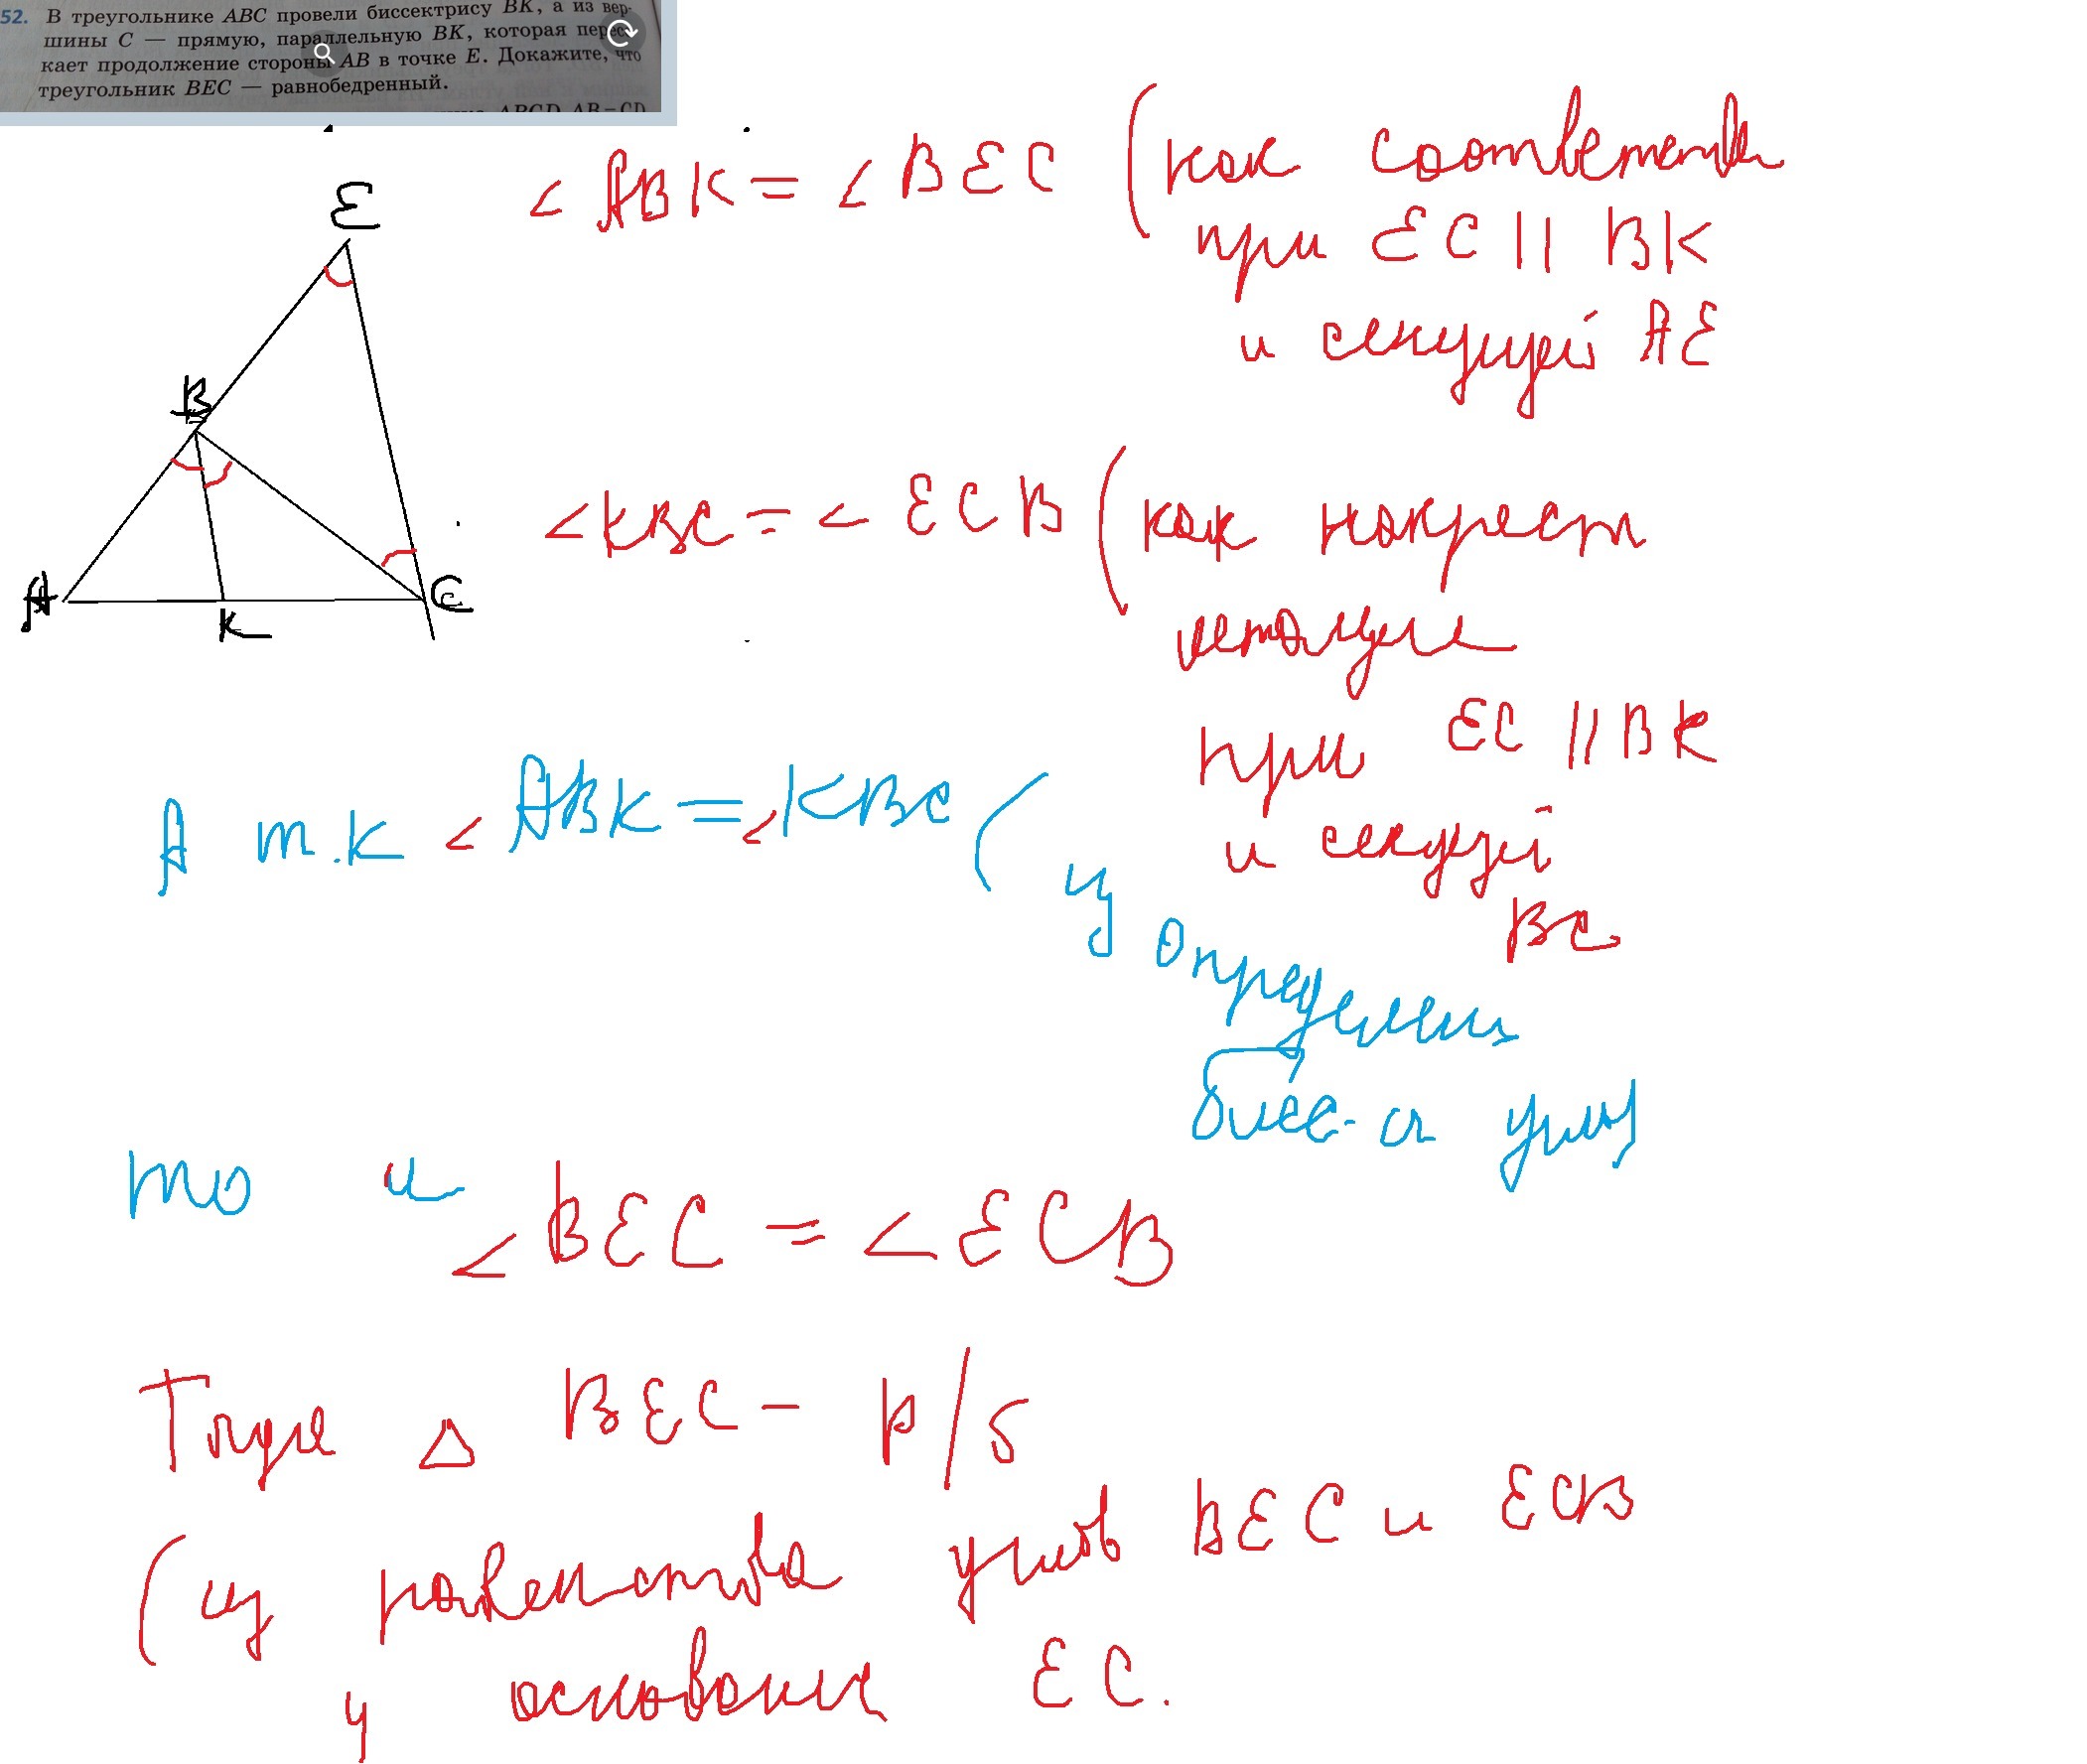 52. В треугольнике ABC провели биссектрису BK, а из вер-
шины C — прямую, параллельную BK, которая пересе-
кает продолжение стороны AB в точке E. Докажите, что
треугольник BEC — равнобедренный.
ABCD AB=CD
E
B
A
K
C
< ABK = < BEC (как соответств
при EC || BK
и секущей AE
<KBC = < ECB (как накрест
лежащие
при EC || BK
и секущей
BC
А т.к < ABK = < KBC (
из определения
бисс-сы угла)
то и
< BEC = < ECB
Тогда △ BEC - р/б
(из равенства углов BEC и ECB
у основания EC.